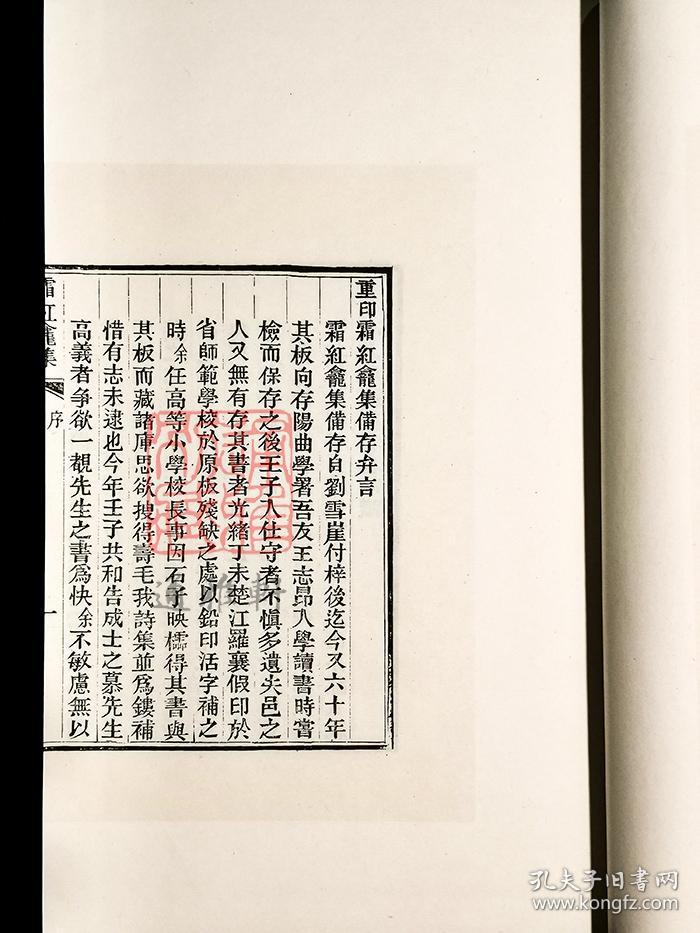 重印霜紅龕集備存弁言
霜紅龕集備存自劉雪崖付梓後迄今又六十年
其板向存陽曲學署吾友王志昂入學讀書時嘗
檢而保存之後王子入仕守者不愼多遺失邑之
人又無有存其書者光緒丁未楚江羅襄假印於
省師範學校於原板殘缺之處以鉛印活字補之
時余任高等小學校長事因石子映櫺得其書與
其板而藏諸庫思欲搜得壽毛我詩集並爲鏤補
惜有志未逮也今年壬子共和告成士之慕先生
高義者爭欲一覩先生之書爲快余不敏慮無以
霜紅龕集
序
一
道雅軒
孔夫子旧书网
www.kongfz.com